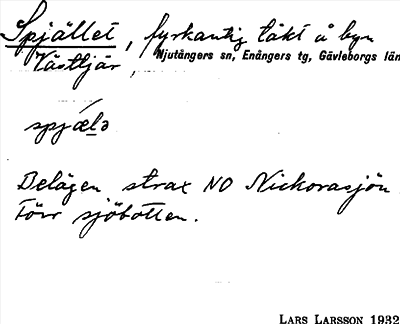 Spjället, fyrkantig täkt å byn
Västtjär,
Njutångers sn, Enångers tg, Gävleborgs län
spjǽlə
Belägen strax NO Nickorasjön.
Förr sjöbotten.
LARS LARSSON 1932